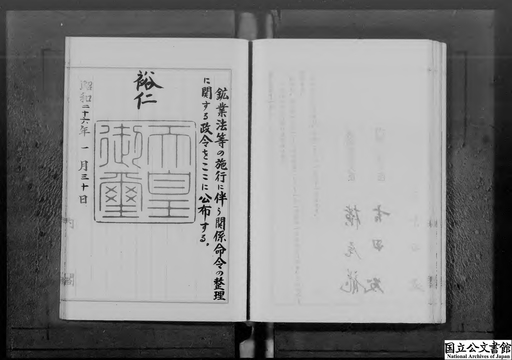 鉱業法等の施行に伴う関係命令の整理
に関する政令をここに公布する。
裕仁
天皇
御璽
昭和二十六年一月三十日
内閣
国立公文書館
National Archives of Japan